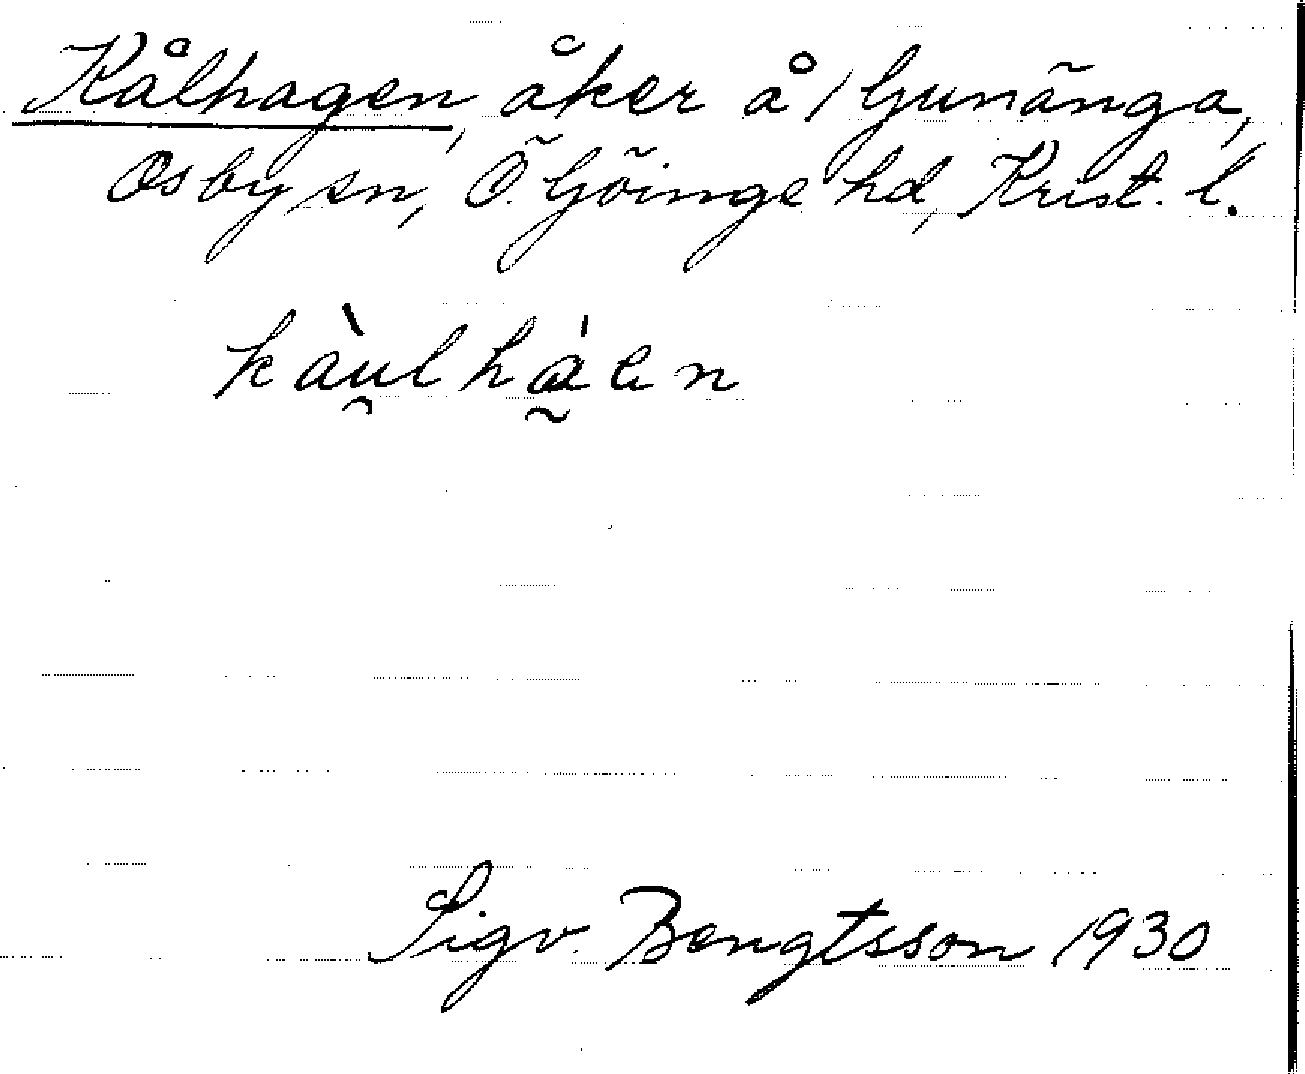 Kålhagen, åker å 1 Gunänga,
Osby sn, Ö. Göinge hd, Krist. l.
kàu̯lhá̰en
Sigv. Bengtsson 1930